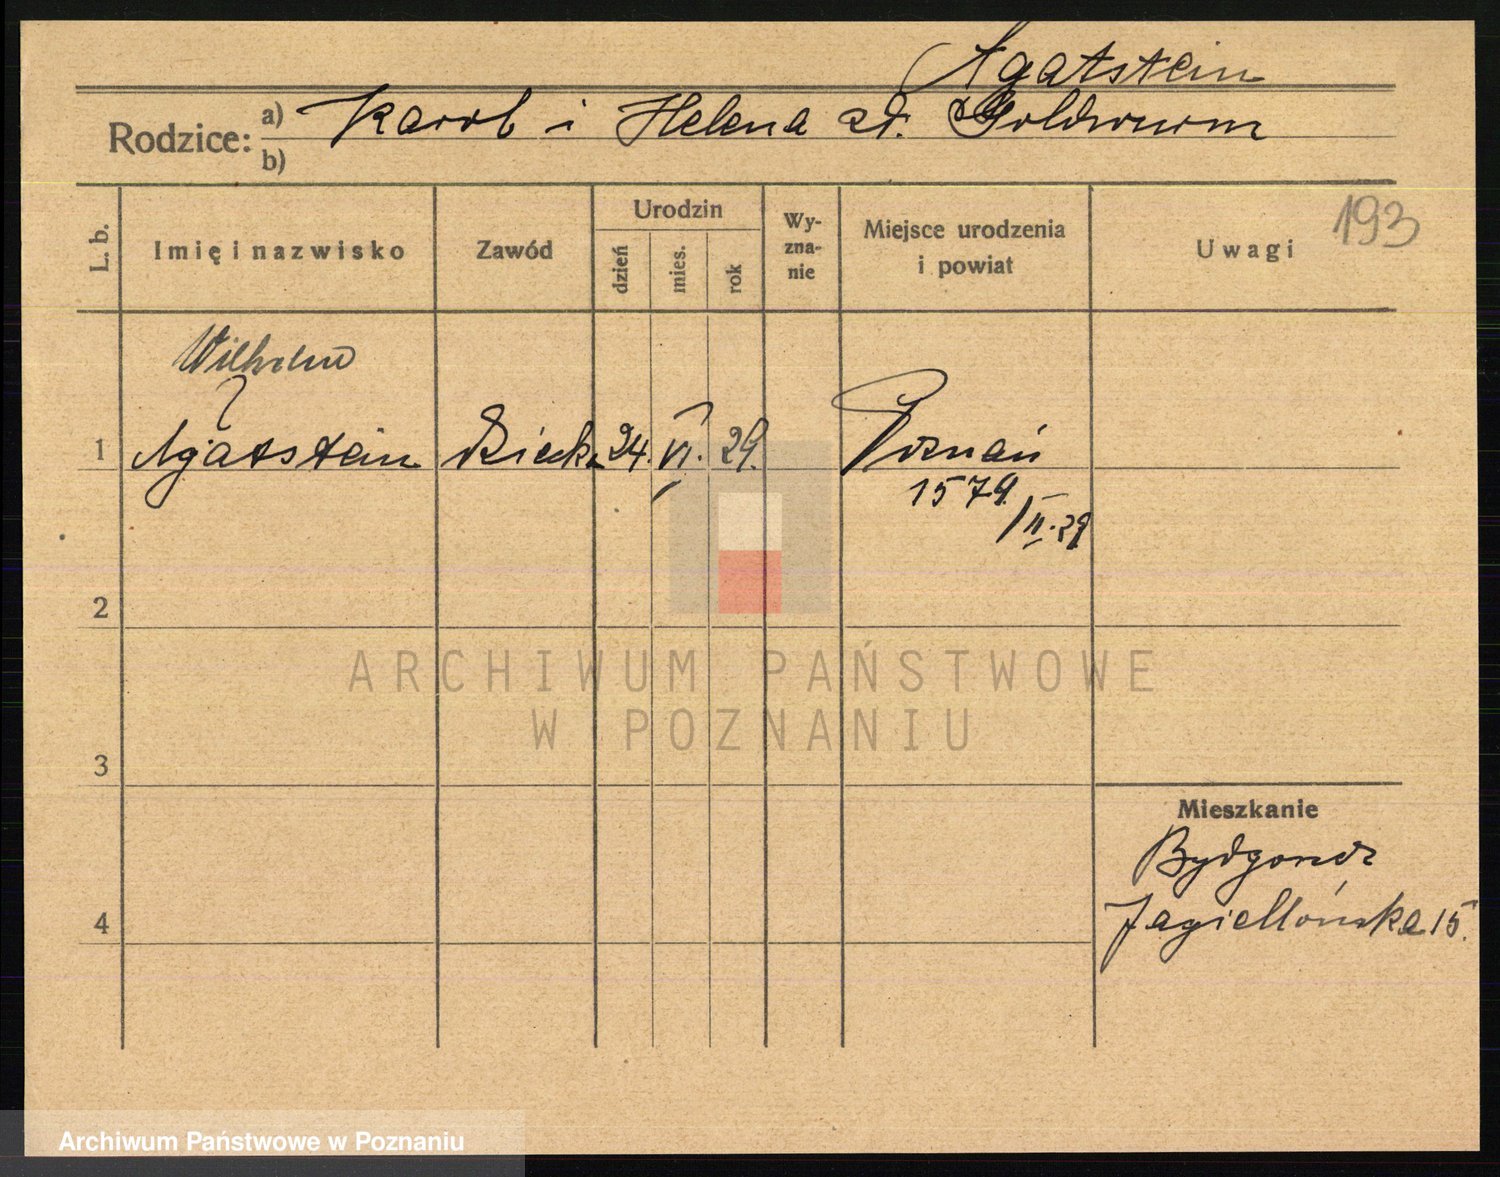 Agatstein
Rodzice: a) Karol i Helena zd.
b)
193
L. b.
Imię i nazwisko
Zawód
Urodzin
dzień
mies.
rok
Wy-
zna-
nie
Miejsce urodzenia
i powiat
Uwagi
Wilhelm
1 Agatstein 24. VI. 29. Poznań
1579/II.29
2
3
4
Mieszkanie
Bydgoszcz
Jagiellońska 15.
ARCHIWUM PAŃSTWOWE
W POZNANIU
Archiwum Państwowe w Poznaniu